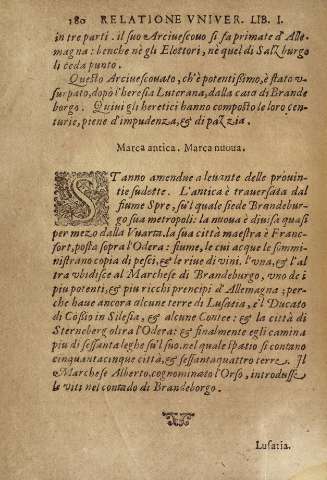 180 RELATIONE VNIVER. LIB. I.
in tre parti. il suo Arciuescouo si fa primate d'Alle
magna: benche nè gli Elettori, nè quel di Salzburgo
li ceda punto.
Questo Arciuescouato, ch'è potentissimo, è stato v
surpato, dopò l'heresia Luterana, dalla casa di Brande
borgo. Quiui gli heretici hanno composto le loro cen
turie, piene d'impudenza, & di pazzia.
Marca antica. Marca nuoua.
STanno amendue a leuante delle prouin
tie sudette. L'antica è trauersata dal
fiume Spre, su'l quale sede Brandebur
go sua metropoli: la nuoua è diuisa quasi
per mezo dalla Vuarta. la sua città maestra è Franc
fort, posta sopra l'Odera: fiume, le cui acque le sommi
nistrano copia di pesci, & le riue di vini. l'vna, & l'al
tra vbidisce al Marchese di Brandeburgo, vno de i
piu potenti, & piu ricchi prencipi d'Allemagna: per-
che haue ancora alcune terre di Lusatia, e'l Ducato
di Cossio in Silesia, & alcune Contee: & la città di
Sterneberg oltra l'Odera: & finalmente egli camina
piu di sessanta leghe su'l suo. nel quale spatio si contano
cinquantacinque città, & sessantaquattro terre. Il
Marchese Alberto, cognominato l'Orso, introdusse
le viti nel contado di Brandeborgo.
Lusatia.